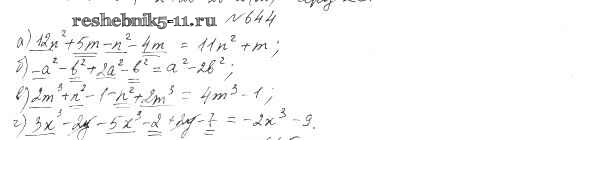 reshebnik5-11.ru №644
а) 12n² + 5m - n² - 4m = 11n² + m;
б) -a² - b² + 2a² - b² = a² - 2b²;
в) 2m³ + n² - 1 - n² + 2m³ = 4m³ - 1;
г) 3x³ - 2y - 5x³ - 2 + 2y - 7 = -2x³ - 9.